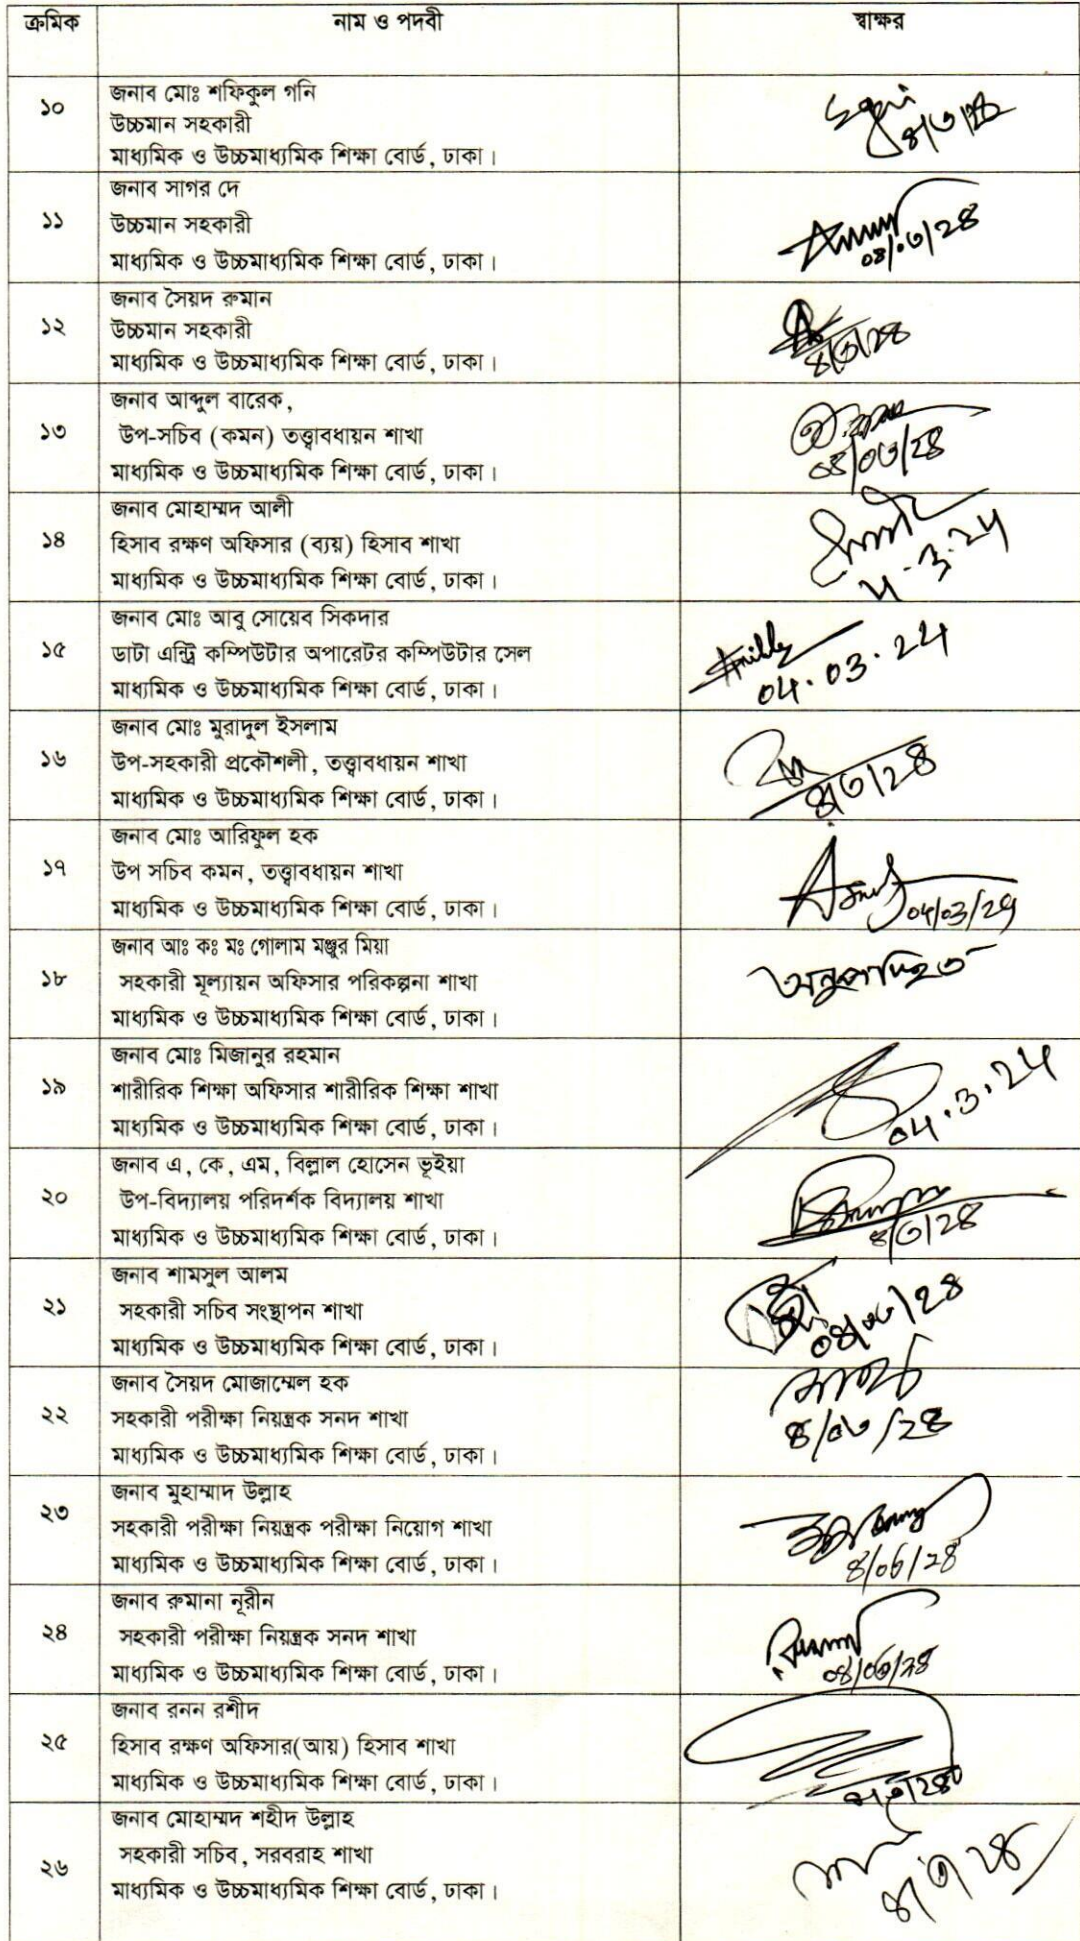 ক্রমিক নাম ও পদবী স্বাক্ষর
১০ জনাব মোঃ শফিকুল গনি
উচ্চমান সহকারী
মাধ্যমিক ও উচ্চমাধ্যমিক শিক্ষা বোর্ড, ঢাকা।
৪/৩/২৪
১১ জনাব সাগর দে
উচ্চমান সহকারী
মাধ্যমিক ও উচ্চমাধ্যমিক শিক্ষা বোর্ড, ঢাকা।
০৪/০৩/২৪
১২ জনাব সৈয়দ রুমান
উচ্চমান সহকারী
মাধ্যমিক ও উচ্চমাধ্যমিক শিক্ষা বোর্ড, ঢাকা।
৪/৩/২৪
১৩ জনাব আব্দুল বারেক,
উপ-সচিব (কমন) তত্ত্বাবধায়ন শাখা
মাধ্যমিক ও উচ্চমাধ্যমিক শিক্ষা বোর্ড, ঢাকা।
০৪/০৩/২৪
১৪ জনাব মোহাম্মদ আলী
হিসাব রক্ষণ অফিসার (ব্যয়) হিসাব শাখা
মাধ্যমিক ও উচ্চমাধ্যমিক শিক্ষা বোর্ড, ঢাকা।
4.3.24
১৫ জনাব মোঃ আবু সোয়েব সিকদার
ডাটা এন্ট্রি কম্পিউটার অপারেটর কম্পিউটার সেল
মাধ্যমিক ও উচ্চমাধ্যমিক শিক্ষা বোর্ড, ঢাকা।
04.03.24
১৬ জনাব মোঃ মুরাদুল ইসলাম
উপ-সহকারী প্রকৌশলী, তত্ত্বাবধায়ন শাখা
মাধ্যমিক ও উচ্চমাধ্যমিক শিক্ষা বোর্ড, ঢাকা।
৪/৩/২৪
১৭ জনাব মোঃ আরিফুল হক
উপ সচিব কমন, তত্ত্বাবধায়ন শাখা
মাধ্যমিক ও উচ্চমাধ্যমিক শিক্ষা বোর্ড, ঢাকা।
04/03/24
১৮ জনাব আঃ কঃ মঃ গোলাম মঞ্জুর মিয়া
সহকারী মূল্যায়ন অফিসার পরিকল্পনা শাখা
মাধ্যমিক ও উচ্চমাধ্যমিক শিক্ষা বোর্ড, ঢাকা।
অনুপস্থিত
১৯ জনাব মোঃ মিজানুর রহমান
শারীরিক শিক্ষা অফিসার শারীরিক শিক্ষা শাখা
মাধ্যমিক ও উচ্চমাধ্যমিক শিক্ষা বোর্ড, ঢাকা।
04.3.24
২০ জনাব এ, কে, এম, বিল্লাল হোসেন ভূইয়া
উপ-বিদ্যালয় পরিদর্শক বিদ্যালয় শাখা
মাধ্যমিক ও উচ্চমাধ্যমিক শিক্ষা বোর্ড, ঢাকা।
৪/৩/২৪
২১ জনাব শামসুল আলম
সহকারী সচিব সংস্থাপন শাখা
মাধ্যমিক ও উচ্চমাধ্যমিক শিক্ষা বোর্ড, ঢাকা।
০৪/০৩/২৪
২২ জনাব সৈয়দ মোজাম্মেল হক
সহকারী পরীক্ষা নিয়ন্ত্রক সনদ শাখা
মাধ্যমিক ও উচ্চমাধ্যমিক শিক্ষা বোর্ড, ঢাকা।
৪/০৩/২৪
২৩ জনাব মুহাম্মাদ উল্লাহ
সহকারী পরীক্ষা নিয়ন্ত্রক পরীক্ষা নিয়োগ শাখা
মাধ্যমিক ও উচ্চমাধ্যমিক শিক্ষা বোর্ড, ঢাকা।
৪/০৩/২৪
২৪ জনাব রুমানা নূরীন
সহকারী পরীক্ষা নিয়ন্ত্রক সনদ শাখা
মাধ্যমিক ও উচ্চমাধ্যমিক শিক্ষা বোর্ড, ঢাকা।
০৪/০৩/২৪
২৫ জনাব রনন রশীদ
হিসাব রক্ষণ অফিসার(আয়) হিসাব শাখা
মাধ্যমিক ও উচ্চমাধ্যমিক শিক্ষা বোর্ড, ঢাকা।
২৬ জনাব মোহাম্মদ শহীদ উল্লাহ
সহকারী সচিব, সরবরাহ শাখা
মাধ্যমিক ও উচ্চমাধ্যমিক শিক্ষা বোর্ড, ঢাকা।
৪/৩/২৪